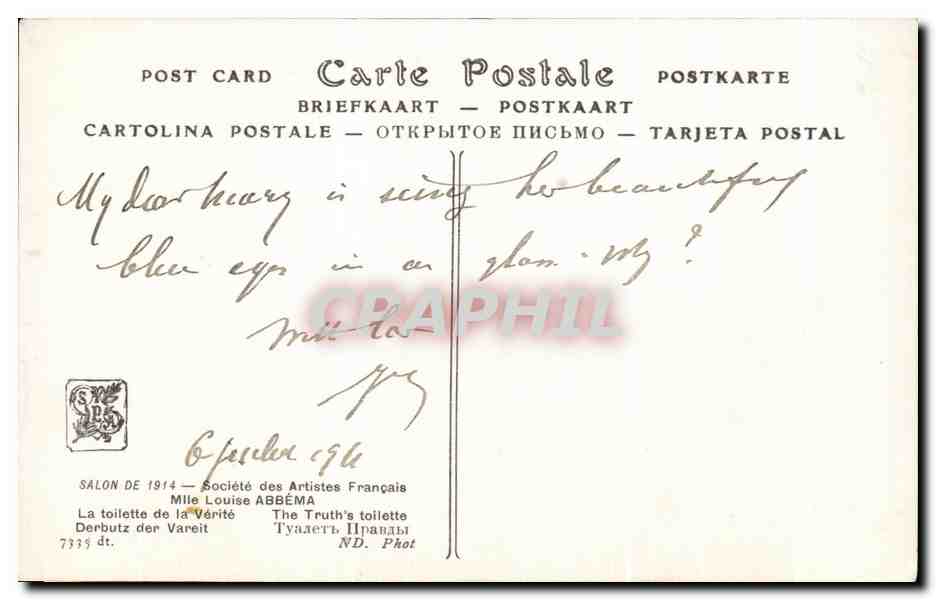 POST CARD Carte Postale POSTKARTE
BRIEFKAART — POSTKAART
CARTOLINA POSTALE — ОТКРЫТОЕ ПИСЬМО — TARJETA POSTAL
My dear Mary is seing her beautiful
blue eyes in a glass. Why?
With love
CPAPHIL
SPA
SALON DE 1914 — Société des Artistes Français
Mlle Louise ABBÉMA
La toilette de la Vérité The Truth's toilette
Derbutz der Vareit Туалетъ Правды
7339 dt. ND. Phot